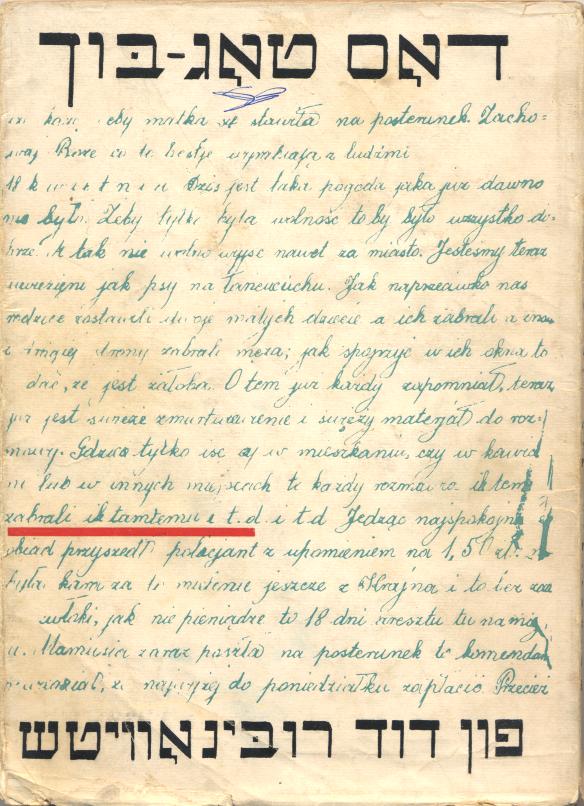 דאָס טאָג-בוך
żeby matka nie stawiła na posterunek. Zacho=
waj Boże co te bestje wyprawiają z ludźmi
18 kwietnia Dziś jest taka pogoda jaka już dawno
nie było. Żeby tylko była wolność to by było wszystko do=
brze. A tak nie wolno wyjść nawet za miasto. Jesteśmy teraz
uwiezieni jak psy na łańcuchu. Jak naprzeciwko nas
rodzice zostawili dwoje małych dzieci a ich zabrali a znow
z drugiej strony zabrali męża; jak spojrzyć w ich okna to
dać, że jest żałoba. O tem już każdy zapomniał, teraz
już jest świeże zmartwienie i świeży materjał do roz=
mowy. Gdzie tylko iść czy w mieszkaniu, czy w kawia
ni lub w innych miejscach to każdy rozmawia ile temu
zabrali ile tamtemu i t.d i t d Jedząc najspokojniej
obiad przyszedł policjant z upomnieniem na 1,50 zł. 
była kara za to mielenie jeszcze z Krajna i to bez
jak nie pieniądze to 18 dni aresztu
Mamusia zaraz poszła na posterunek to komendant
powiedział, że najwyżej do poniedziałku zapłacić. Przecież
פון דוד רובינאָוויטש